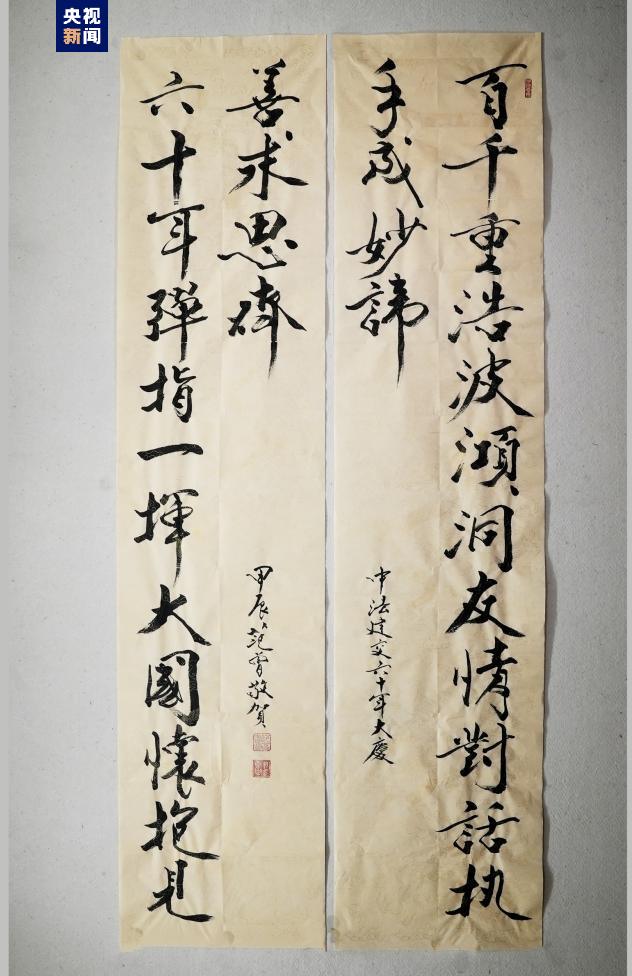 央视
新闻
百千重浩波澒洞友情對話执
手成妙諦
中法建交六十年大慶
六十年彈指一揮大國懷抱見
善求思齊
甲辰范曾敬賀